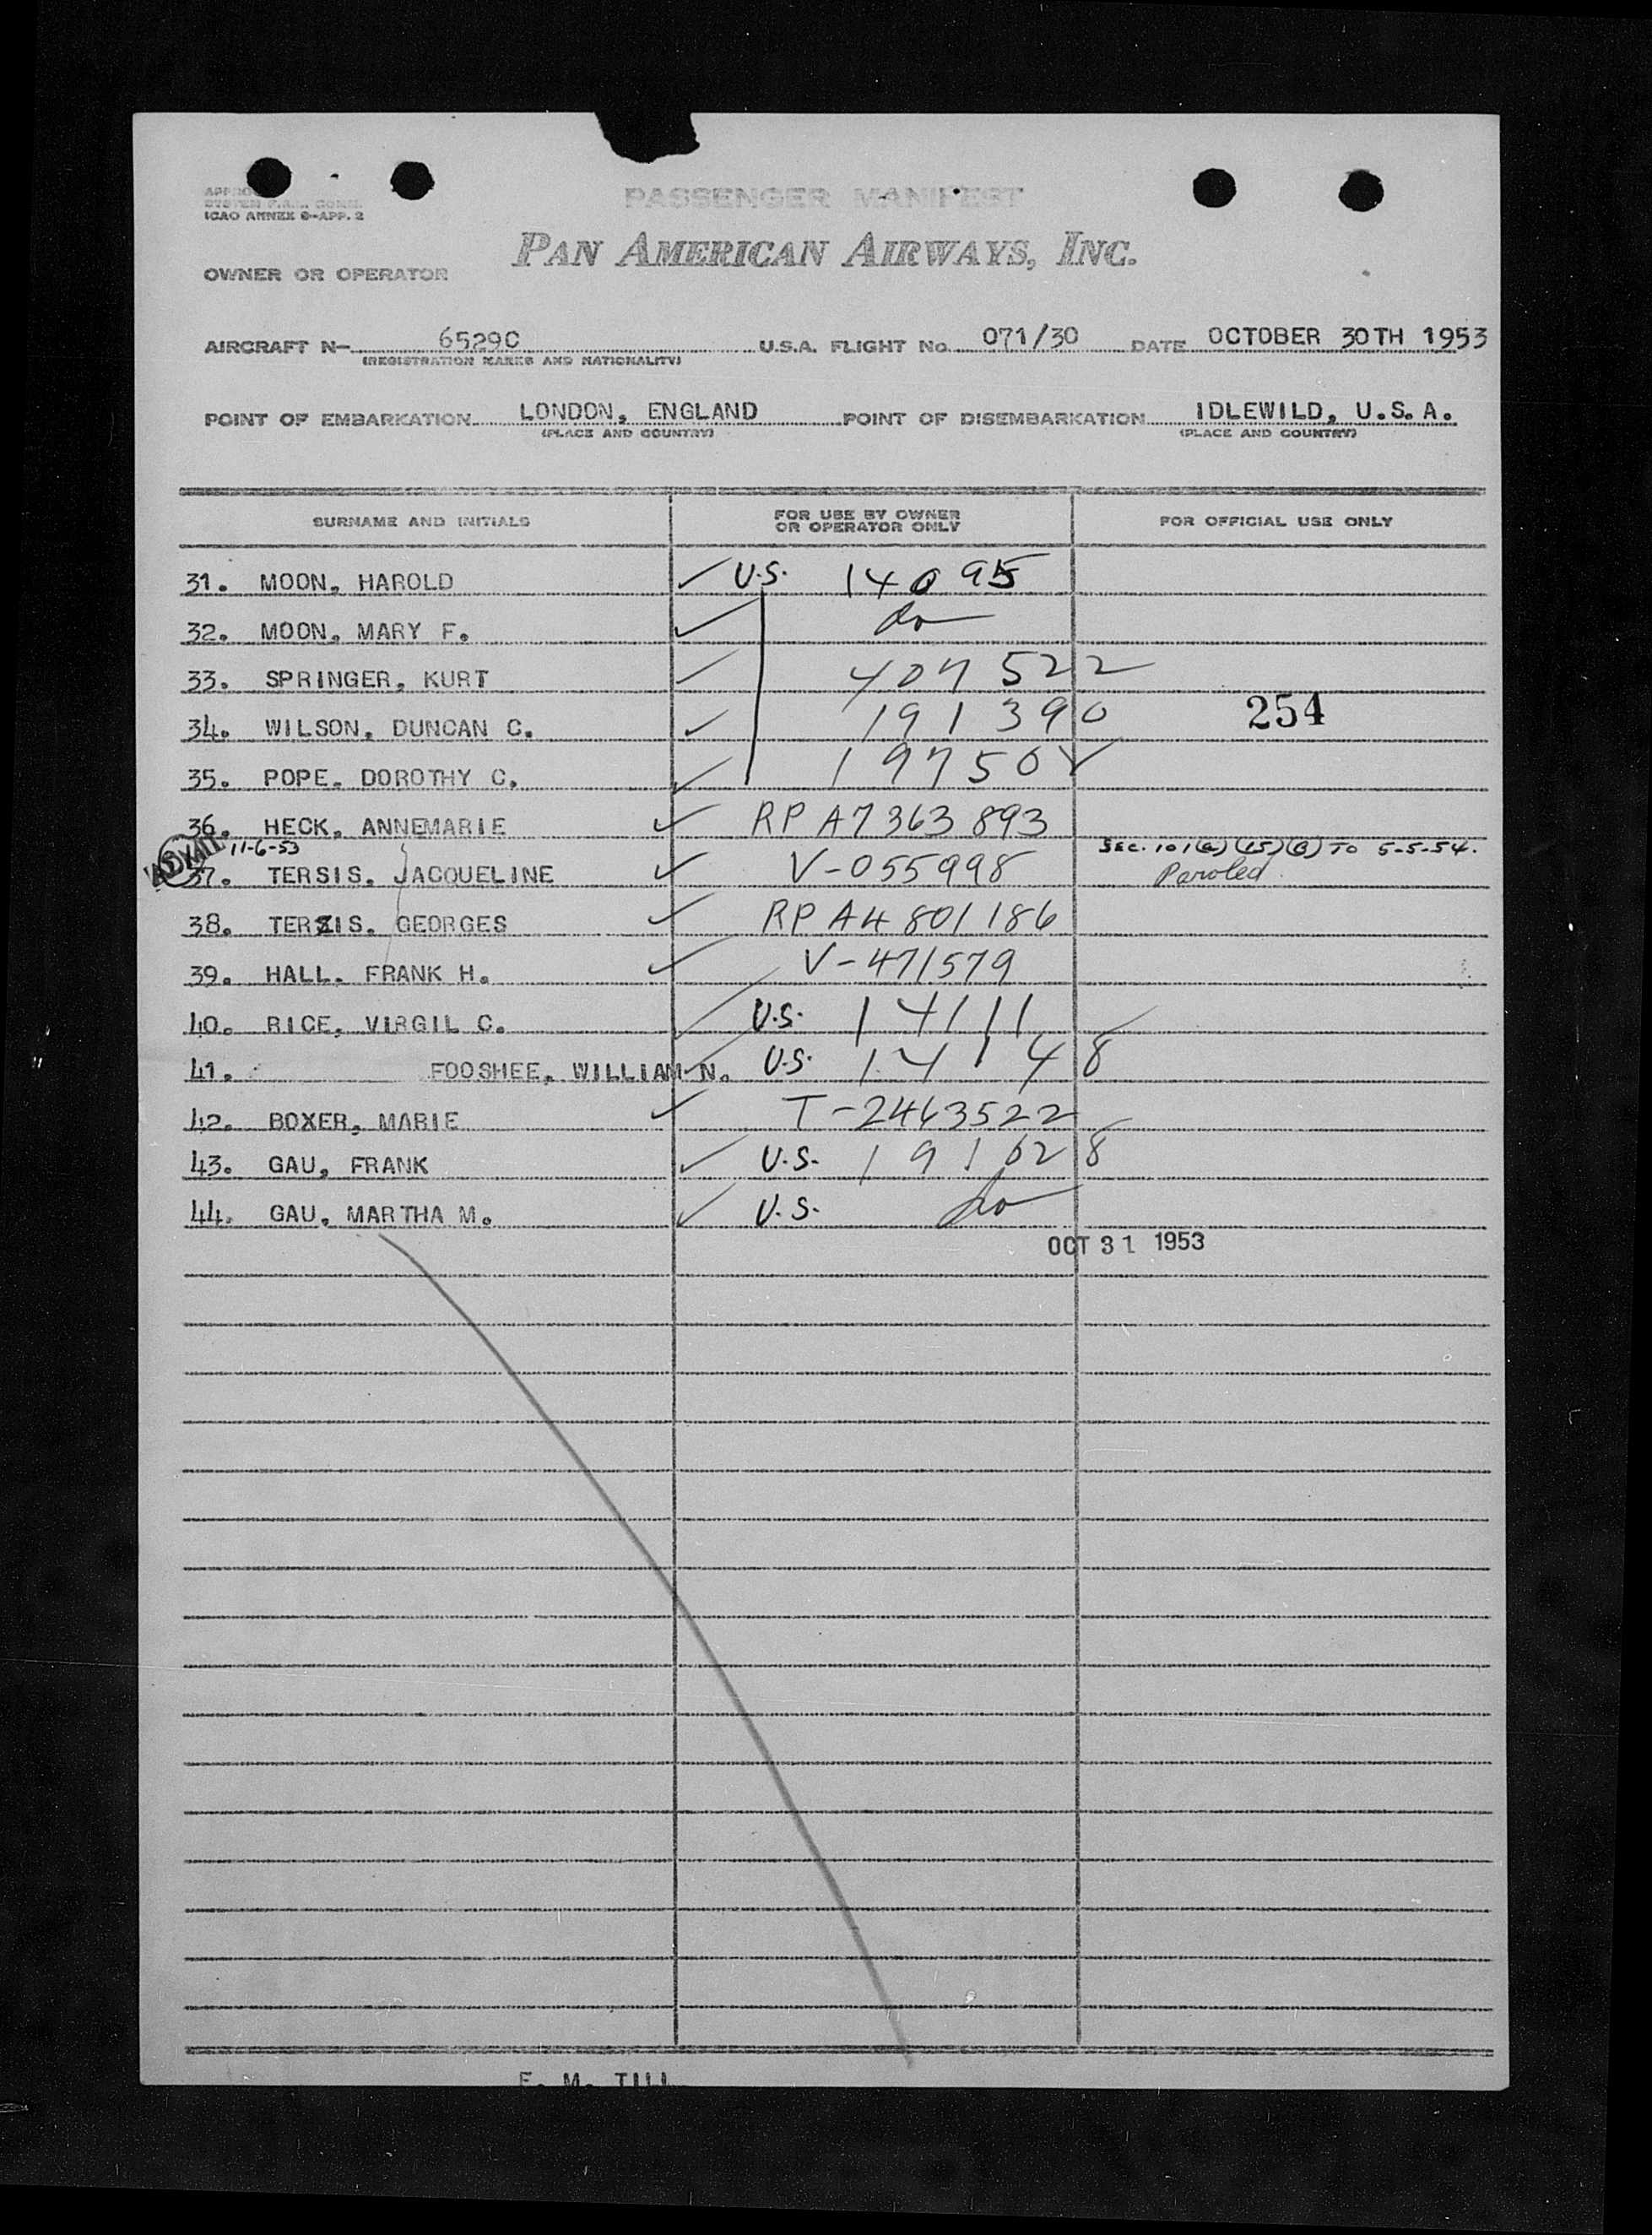 PASSENGER MANIFEST
ICAO ANNEX 9-APP. 2
PAN AMERICAN AIRWAYS, INC.
OWNER OR OPERATOR
AIRCRAFT N- 6529C U.S.A. FLIGHT No. 071/30 DATE OCTOBER 30TH 1953
(REGISTRATION MARKS AND NATIONALITY)
POINT OF EMBARKATION LONDON, ENGLAND POINT OF DISEMBARKATION IDLEWILD, U.S.A.
(PLACE AND COUNTRY) (PLACE AND COUNTRY)
SURNAME AND INITIALS FOR USE BY OWNER OR OPERATOR ONLY FOR OFFICIAL USE ONLY
31. MOON, HAROLD ✓ U.S. 14095
32. MOON, MARY F. ✓ do
33. SPRINGER, KURT ✓ 407522
34. WILSON, DUNCAN C. ✓ 191390 254
35. POPE, DOROTHY C. ✓ 19750
36. HECK, ANNEMARIE ✓ RP A7363893
ADMIT 11-6-53 SEC. 101(a)(15)(B) TO 5-5-54.
37. TERSIS, JACQUELINE ✓ V-055998 Paroled
38. TERZIS, GEORGES ✓ RP A4801186
39. HALL, FRANK H. ✓ V-471579
40. RICE, VIRGIL C. ✓ U.S. 14111
41. FOOSHEE, WILLIAM N. ✓ U.S. 14148
42. BOXER, MARIE ✓ T-2463522
43. GAU, FRANK ✓ U.S. 191628
44. GAU, MARTHA M. ✓ U.S. do
OCT 31 1953
E. M. TILL